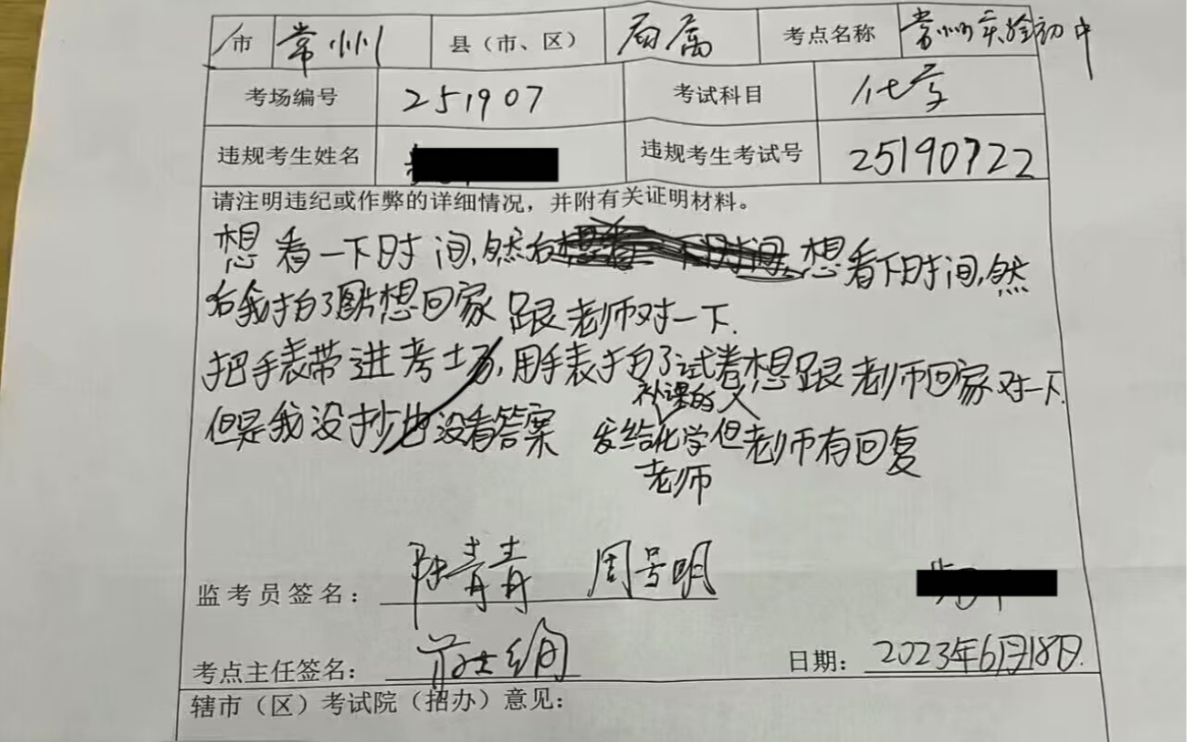 市 常州 县（市、区） 局属 考点名称 常州实验初中
考场编号 251907 考试科目 化学
违规考生姓名 违规考生考试号 25190722
请注明违纪或作弊的详细情况，并附有关证明材料。
想看一下时间,然右 想看下时间,然
右我拍了图片想回家跟老师对一下.
把手表带进考场,用手表拍了试卷想跟老师回家对一下.
补课的
但是我没抄也没看答案 发给化学但老师有回复
老师
监考员签名： 陆青青 周号明
考点主任签名： 日期： 2023年6月18日.
辖市（区）考试院（招办）意见：